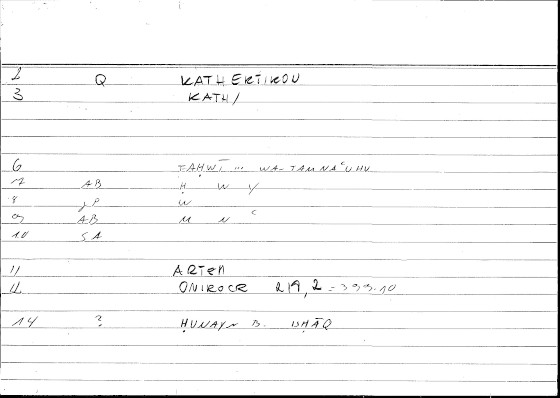 2 Q KATHEKTIKOU
3 KATH/
6 TAḤWĪ ... WA-TAMNAʿUHU
7 AB Ḥ W Y
8 W
9 AB M N ʿ
10 SA
11 ARTEM
12 ONIROCR 219,2 = 399.10
14 ? ḤUNAYN B. ISḤĀQ